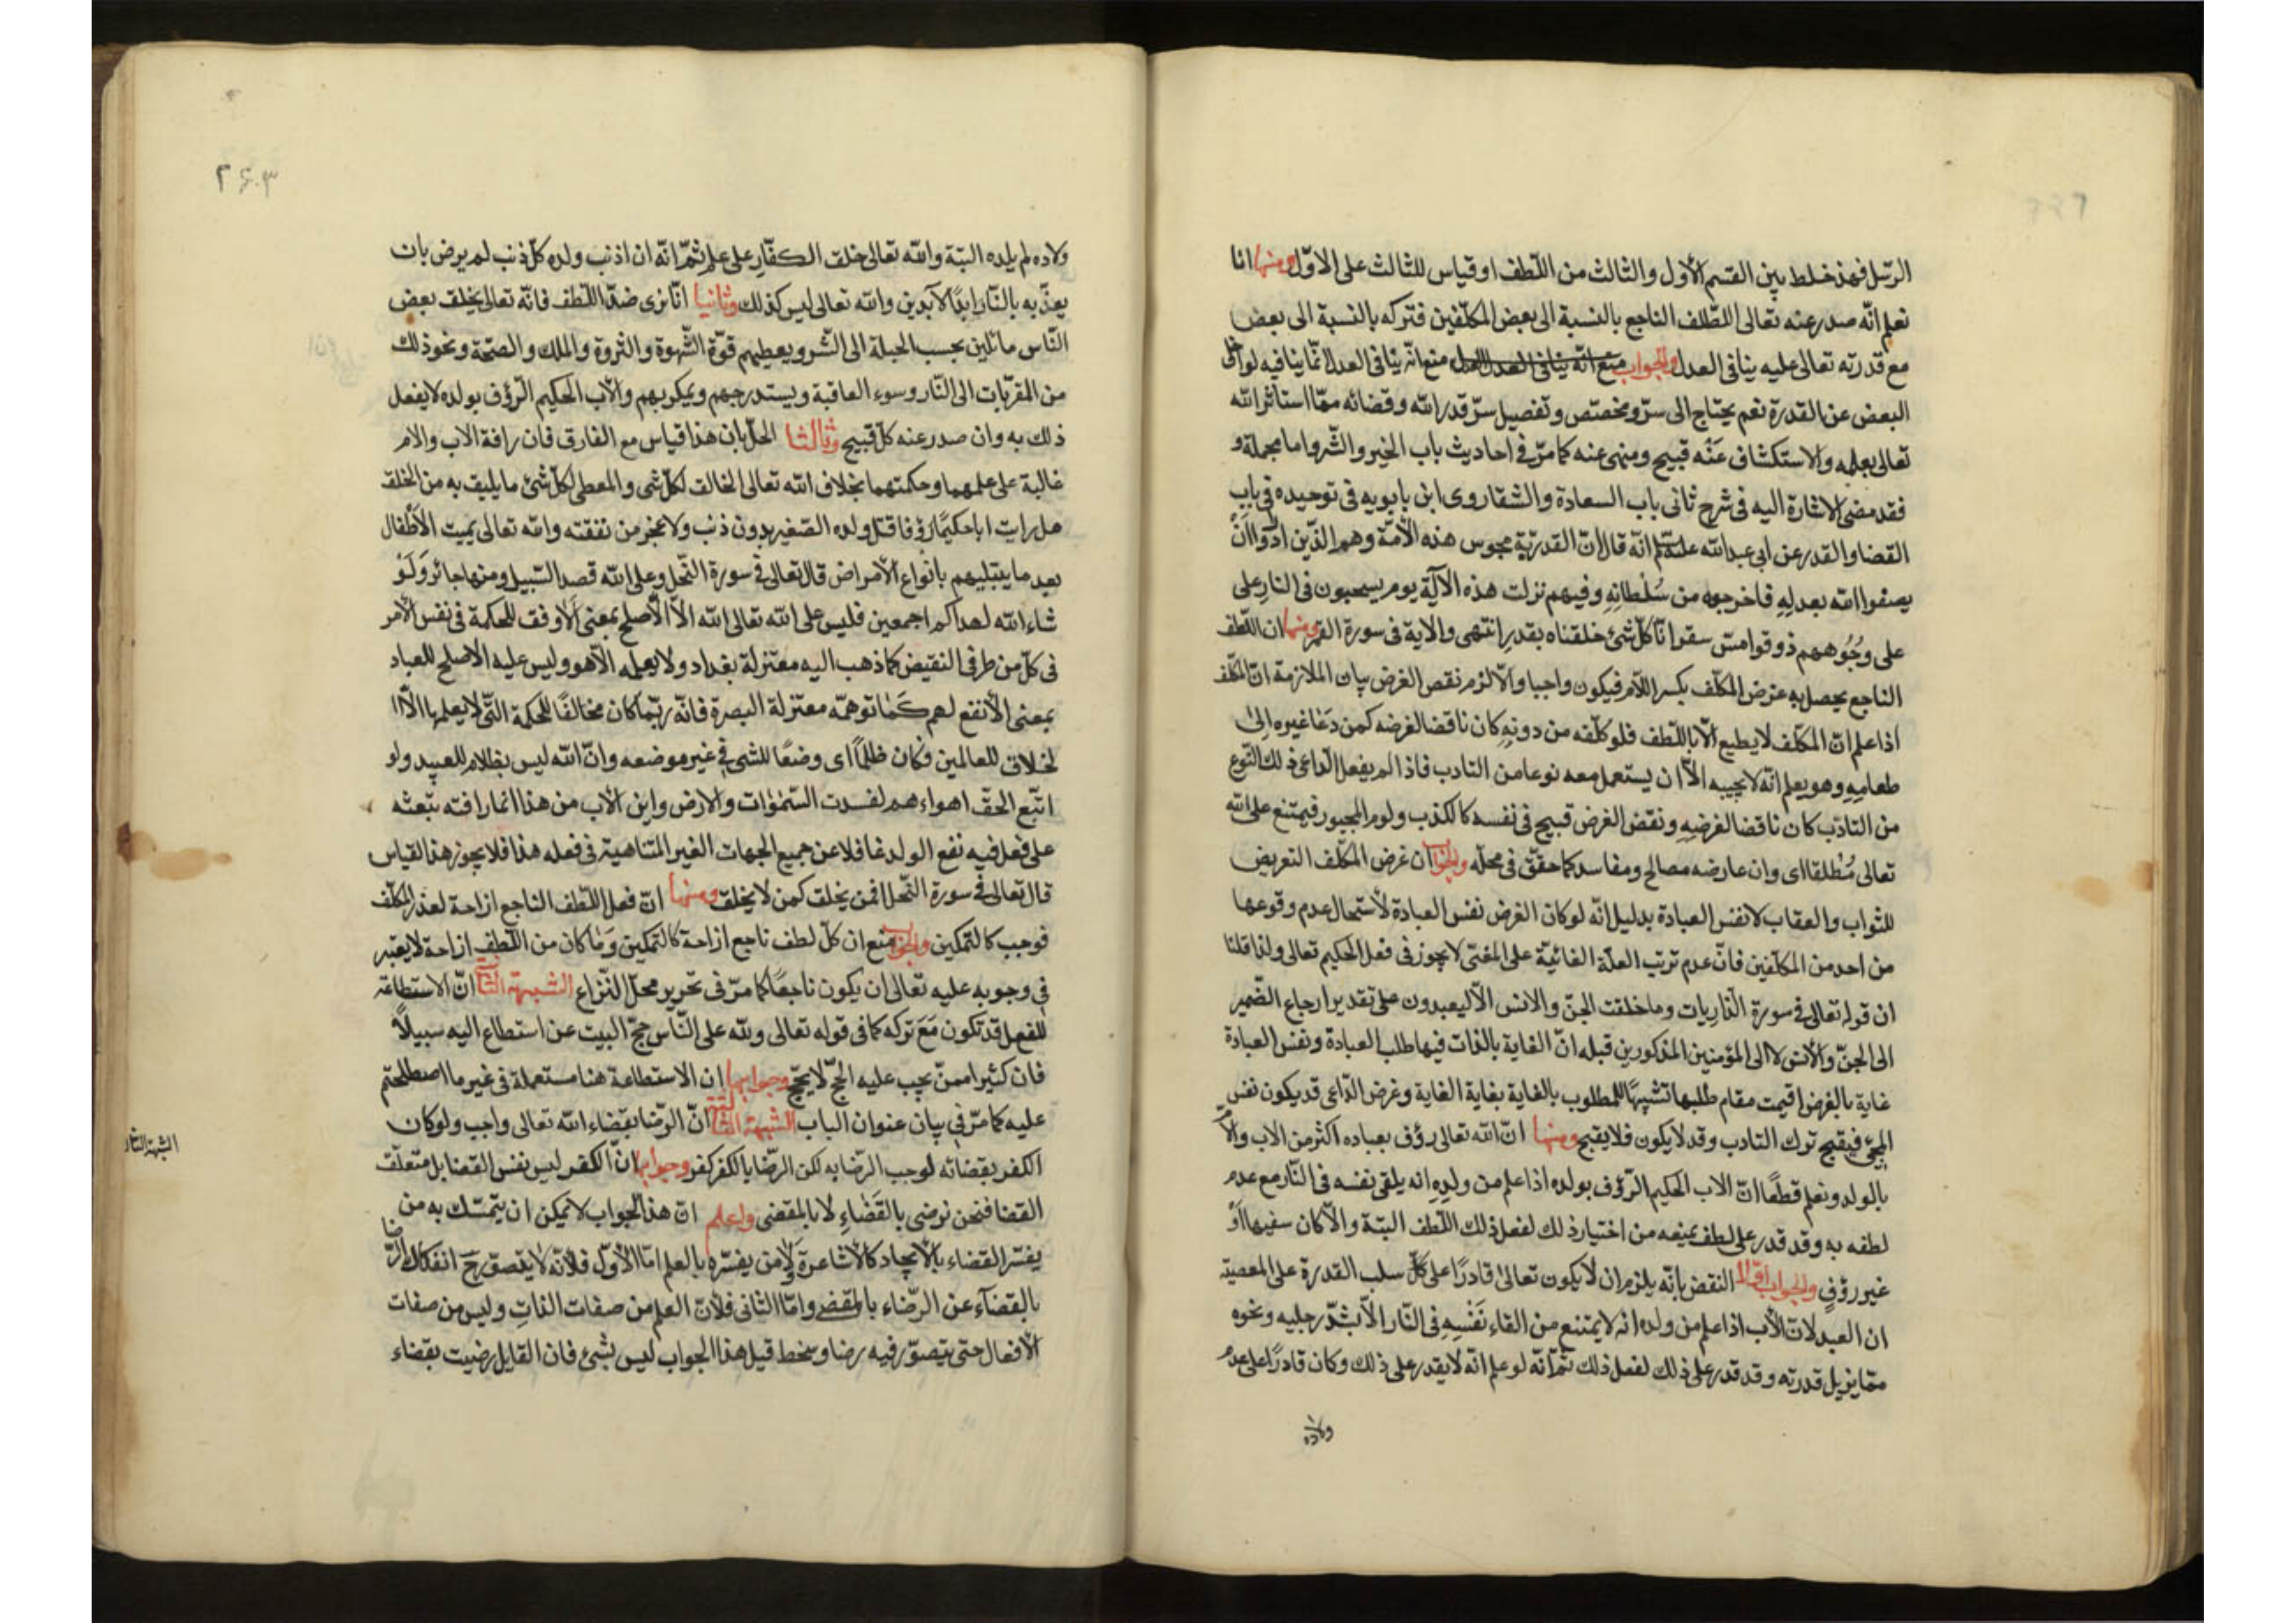 الرسل فهذ خلط بين القسم الأول والثالث من اللطف او قياس للثالث على الاوّل ومنها انا
نعلم انّه صدر عنه تعالى اللطف الناجع بالنسبة الى بعض المكلّفين فتركه بالنسبة الى بعض
مع قدرته تعالى عليه ينافى العدل والجواب منع انّه ينافى العدل منع انّه ينافى العدل انّما ينافيه لو
البعض عن القدرة نعم يحتاج الى سرّ ومخصّص وتفصيل سرّ قدر الله وقضائه ممّا استاثر الله
تعالى بعلمه والاستكشاف عَنْه قبيح ومنهى عنه كما مرّ فى احاديث باب الخير والشّر واما مجملة و
فقد مضى الاشارة اليه فى شرح ثانى باب السعادة والشقا روى ابن بابويه فى توحيده فى باب
القضا والقدر عن ابى عبد الله انّه قال انّ القدريّة مجوس هذه الأمّة وهم الذّين ادّوا انْ
يصفوا الله بعدلِهِ فاخرجوه من سُلْطانِهِ وفيهم نزلت هذه الآية يوم يسحبون فى النارِ على
على وجُوههم ذوقوا مسّ سقر انّا كلّ شئ خلقناه بقدرٍ انتهى والاية فى سورة القمر ومنها ان اللّطف
الناجع يحصل به غرض المكلّف بكسر اللام فيكون واجبا والّا لزم نقص الغرض بيان الملازمة انّ المكلّف
اذا علم انّ المكلّف لا يطيع الّا باللّطف فلو كلّفه من دونِهِ كان ناقضا لغرضه كمن دَعَا غيره إلىٰ
طعامِهِ وهو يعلم انّه لا يجيبه الّا ان يستعمل معه نوعا من التادب فاذا لم يفعل الداعى ذلك النّوع
من التادّب كان ناقضا لغرضِهِ ونقض الغرض قبيح فى نفسه كالكذب ولوم المجبور فيمتنع على الله
تعالى مُطلقا اى وان عارضه مصالح ومفاسد كما حقّق فى محلّه والجواب ان غرض المكلّف التعريض
للثواب والعقاب لا نفس العبادة بدليل انّه لو كان الغرض نفس العبادة لأستحال عدم وقوعها
من احد من المكلّفين فانّ عدم ترتب العلّة الغائيّة على المغيّى لا يجوز فى فعل الحكيم تعالى ولذا قلنا
ان قوله تعالى فى سورة الذاريات وما خلقت الجنّ والانس الّا ليعبدون على تقدير ارجاع الضّمير
الى الجنّ والأنس لا الى المؤمنين المذكورين قبله انّ الغاية بالذات فيها طلب العبادة ونفس العبادة
غاية بالغرض اقيمت مقام طلبها تشبيهًا للمطلوب بالغاية بغاية الغاية وغرض الدّاعى قد يكون نفس
المجئ فيقبح ترك التادب وقد لا يكون فلا يقبح ومنها انّ الله تعالى رؤف بعباده اكثر من الاب والامّ
بالولد ونعلم قطعًا انّ الاب الحكيم الرّؤف بولده اذا علم من ولدِهِ انه يلقى نفسه فى النّار مع عدم
لطفه به وقد قدر على لطف يمنعه من اختيار ذلك لفعل ذلك اللّطف البتة والّا كان سفيها أوْ
غير رؤفٍ والجواب اوّلا النقض بانّه يلزم ان لا يكون تعالىٰ قادرًا على كلّ سلب القدرة على المعصية
ان العبد لانّ الأب اذا علم من ولده انّه لا يمتنع من القاء نَفْسِهِ فى النّار الّا بشدّ رجليه ونحوه
ممّا يزيل قدرته وقد قدر على ذلك لفعل ذلك ثمّ انّه لو علم انّه لا يقدر على ذلك وكان قادرًا على عدم
ولاده
٢٤٠٣
ولاده لم يلده البتة والله تعالى خلق الكفّار على علم ثمّ انّه ان اذنب ولده كلّ ذنب لم يرض بان
يعذّبه بالنّار ابدًا لآبدين والله تعالى ليس كذلك وثانيا انّا نرى ضدّ اللّطف فانّه تعالى يخلق بعض
النّاس مائلين بحسب الجبلة الى الشّر ويعطيهم قوّة الشّهوة والثروة والملك والصحّة ونحو ذلك
من المقرّبات الى النّار وسوء العاقبة ويستدرجهم ويمكر بهم والاب الحكيم الرّؤف بولده لا يفعل
ذلك به وان صدر عنه كلّ قبيح وثالثا الحلّ بان هذا قياس مع الفارق فان رافة الاب والام
غالبة على علمهما وحكمتهما بخلاف الله تعالى الخالق لكلّ شى والمعطى لكلّ شئ ما يليق به من الخلق
هل رايت ابا حكيمًا رؤفا قتل ولده الصّغير بدون ذنب ولا عجز من نفقته والله تعالى يميت الأطفال
بعد ما يبتليهم بانواع الامراض قال تعالى فى سورة النّحل وعلى الله قصد السّبيل ومنها جائر وَلَوْ
شاء الله لهداكم اجمعين فليس على الله تعالى الله الّا الأصلح بمعنى الأوفق للحكمة فى نفس الأمر
فى كلّ من طرفى النقيض كما ذهب اليه معتزلة بغداد ولا يعلمه الّا هو وليس عليه الأصلح للعباد
بمعنى الأنفع لهم كَمَا توهمّه معتزلة البصرة فانّه ربّما كان مخالفًا للحكمة التّى لا يعلمها الّا
الخلاق للعالمين فكان ظلمًا اى وضعًا للشى فى غير موضعه وانّ الله ليس بظلام للعبيد ولو
اتبّع الحقّ اهواءهم لفسدت السّمٰوات والارض واين الأب من هذا انما رافته تبّعثه
على فعل فيه نفع الولد غافلا عن جميع الجهات الغير المتناهية فى فعله هذا فلا يجوز هذ القياس
قال تعالى فى سورة النّحل افمن يخلق كمن لا يخلق ومنها انّ فعل اللّطف الناجع ازاحة لعذر المكلّف
فوجب كالتمكين والجواب منع ان كلّ لطف ناجع ازاحة كالتمكين وَمَا كان من اللّطف ازاحة لا يعتبر
فى وجوبه عليه تعالى ان يكون ناجعًا كما مرّ فى تحرير محلّ النّزاع الشبهة انّ الاستطاعة
للفعل قد تكون مَعَ تركه كما فى قوله تعالى ولله على النّاس حجّ البيت عن استطاع اليه سبيلًا
فان كثيرا ممّن يجب عليه الحجّ لا يحّج وجوابها ان الاستطاعة هنا مستعملة فى غير ما اصطلحتم
عليه كما مرّ فى بيان عنوان الباب الشبهة انّ الرضا بقضاء الله تعالى واجب ولو كان
الكفر بقضائه لوجب الرضا به لكن الرّضا بالكفر كفر وجوابها انّ الكفر ليس نفس القضا بل متعلّق
القضا فنحن نرضى بالقَضَاءِ لا بالمقضى واعلم انّ هذا الجواب لا يمكن ان يتمسّك به من
يفسّر القضاء بالأيجاد كالاشاعرة ولا من يفسّره بالعلم امّا الأوّل فلأنّه لا يتصوّر ح انفكاك الرّضا
بالقضآء عن الرضّاء بالمقضى وامّا الثانى فلأنّ العلم من صفات الذاتِ وليس من صفات
الأفعال حتى يتصوّر فيه رضا وسخط قيل هذا الجواب ليس بشئ فان القايل رضيت بقضاء